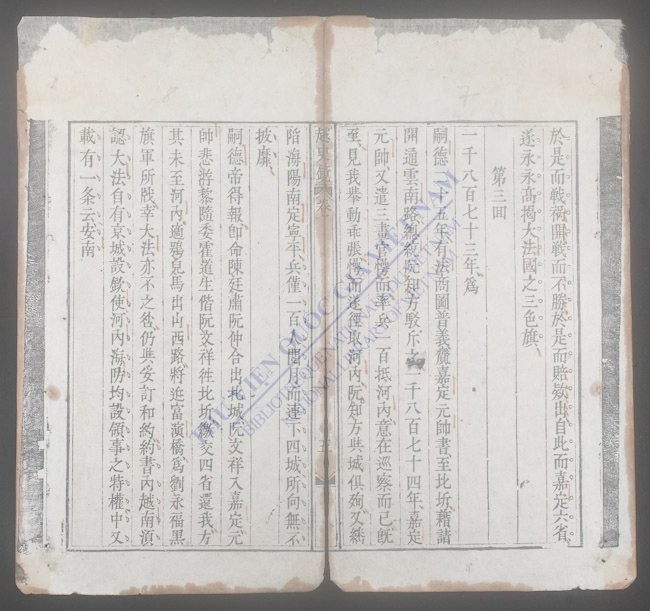 於是而戰衅開戰而不勝於是而賠欵出自此而嘉定六省
遂永永高揭大法國之三色旗
第三回
一千八百七十三年爲
嗣德二十五年有法商圖普義賫嘉定元帥書至北圻藉請
開通雲南路總統阮知方駁斥之一千八百七十四年嘉定
元帥又遣三畫官傷而率兵一百抵河內意在巡察而已既
至見我舉動乖張傷而遂徑取河內阮知方與城俱殉又繼
越史 卷 五
陷海陽南定寧平兵僅一百 閱月而連下四城所向無不
披靡
嗣德帝得報卽命陳廷肅阮仲合出北城阮文祥入嘉定元
帥悲游黎隨委霍道生偕阮文祥徃北圻繳交四省還我方
其未至河內適鴉兒馬出山西路將迄富演橋爲劉永福黑
旗軍所戕幸大法亦不之咎仍與妥訂和約約書內越南湏
認大法自有京城設欽使河內海防均設領事之特權中又
載有一条云安南
THƯ VIỆN QUỐC GIA VIỆT NAM
BIBLIOTHEQUE NATIONALE DU VIETNAM
NATIONAL LIBRARY OF VIETNAM